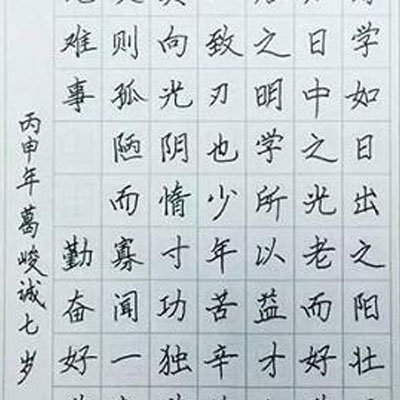 学如日出之阳壮
日中之光老而好
之明学所以益才
致刃也少年苦辛
向光阴惰寸功独
则孤陋而寡闻一
难事 勤奋好
丙申年葛峻诚七岁